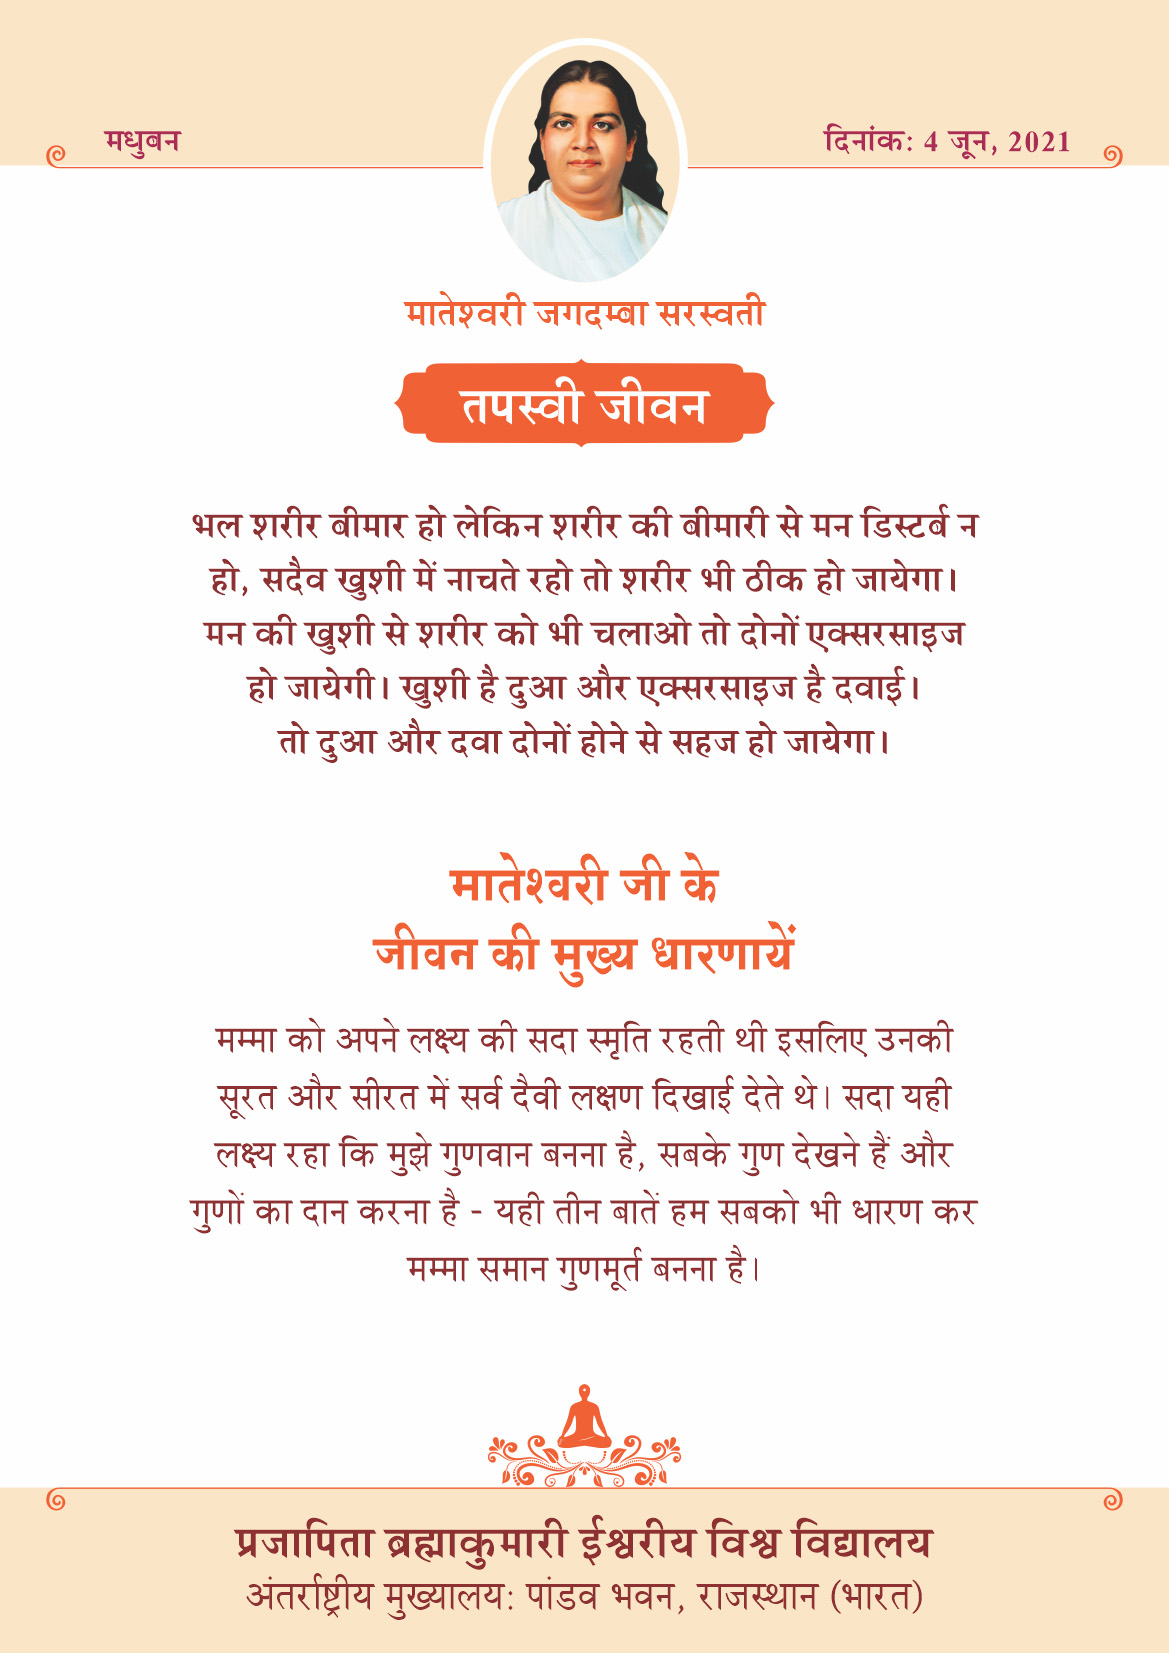 मधुबन
दिनांक: 4 जून, 2021
मातेश्वरी जगदम्बा सरस्वती
तपस्वी जीवन
भल शरीर बीमार हो लेकिन शरीर की बीमारी से मन डिस्टर्ब न
हो, सदैव खुशी में नाचते रहो तो शरीर भी ठीक हो जायेगा।
मन की खुशी से शरीर को भी चलाओ तो दोनों एक्सरसाइज
हो जायेगी। खुशी है दुआ और एक्सरसाइज है दवाई।
तो दुआ और दवा दोनों होने से सहज हो जायेगा।
मातेश्वरी जी के
जीवन की मुख्य धारणायें
मम्मा को अपने लक्ष्य की सदा स्मृति रहती थी इसलिए उनकी
सूरत और सीरत में सर्व दैवी लक्षण दिखाई देते थे। सदा यही
लक्ष्य रहा कि मुझे गुणवान बनना है, सबके गुण देखने हैं और
गुणों का दान करना है - यही तीन बातें हम सबको भी धारण कर
मम्मा समान गुणमूर्त बनना है।
प्रजापिता ब्रह्माकुमारी ईश्वरीय विश्व विद्यालय
अंतर्राष्ट्रीय मुख्यालय: पांडव भवन, राजस्थान (भारत)